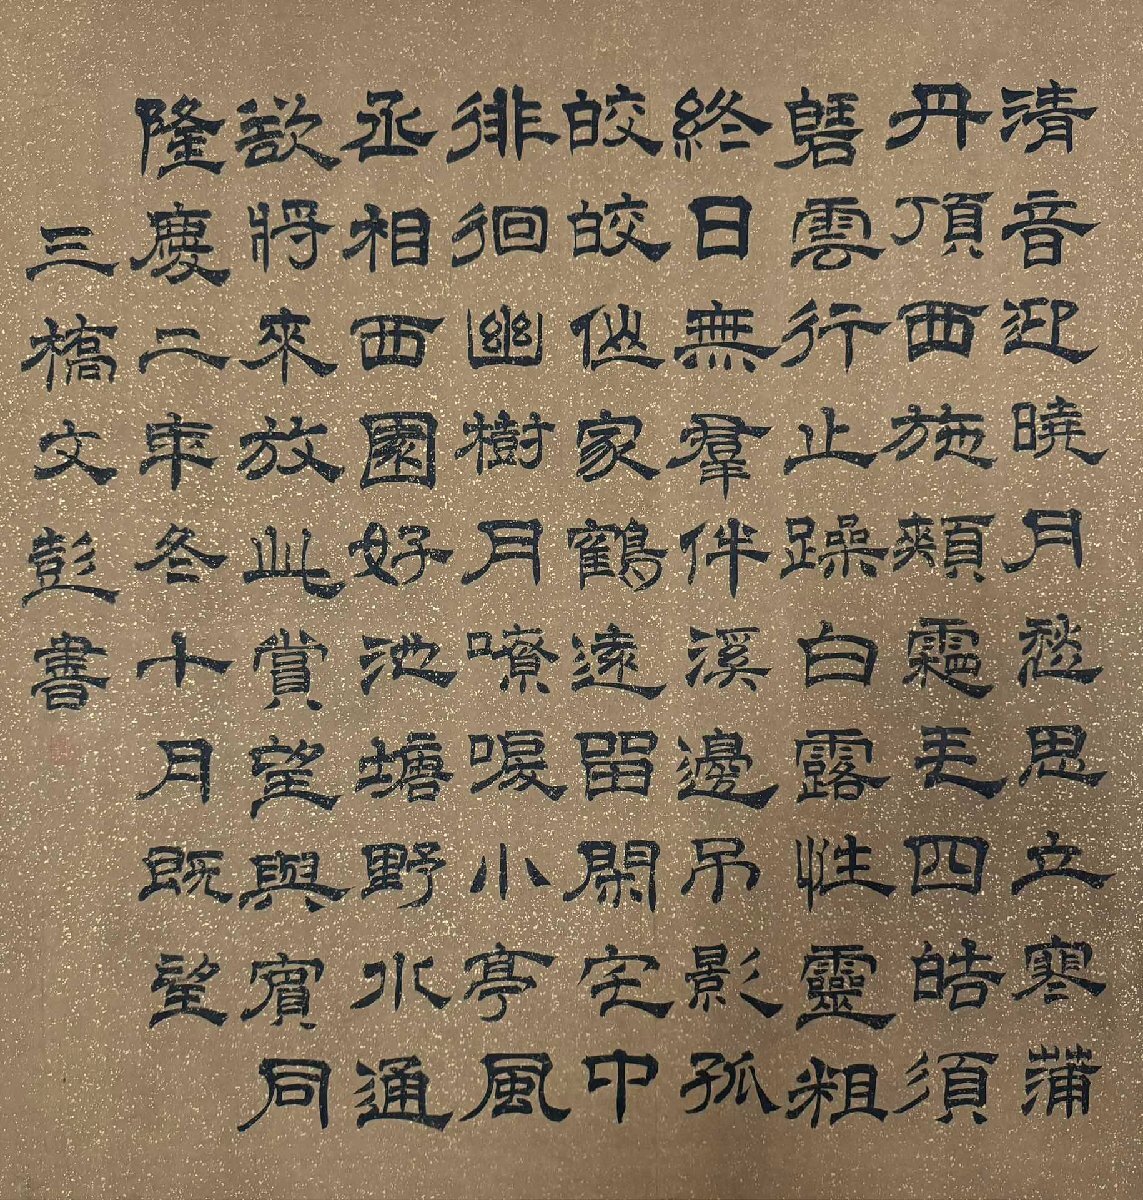 清音迎曉月愁思立寒蒲
丹頂西施頰霜毛四皓須
碧雲行止躁白露性靈粗
終日無羣伴溪邊吊影孤
皎皎仙家鶴遠留閑宅中
徘徊幽樹月嘹唳小亭風
丞相西園好池塘野水通
欲將來放此賞望與賓同
隆慶二年冬十月既望
三橋文彭書